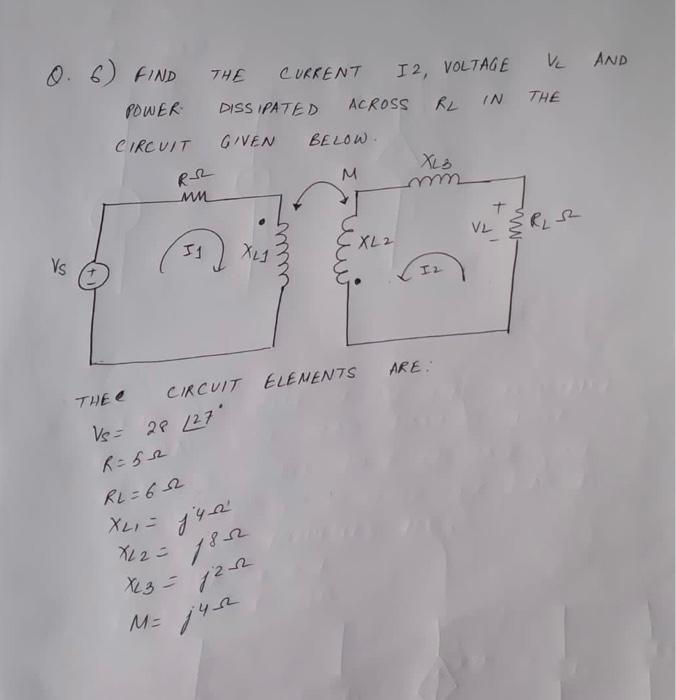 Q. 6) FIND THE CURRENT I2, VOLTAGE VL AND
POWER DISSIPATED ACROSS RL IN THE
CIRCUIT GIVEN BELOW.
RΩ
M
XL3
VS
+
-
I1
XL1
XL2
I2
+
VL
-
RL Ω
THE CIRCUIT ELEMENTS ARE:
VS = 28 ∠27°
R = 5 Ω
RL = 6 Ω
XL1 = j4 Ω
XL2 = j8 Ω
XL3 = j2 Ω
M = j4 Ω